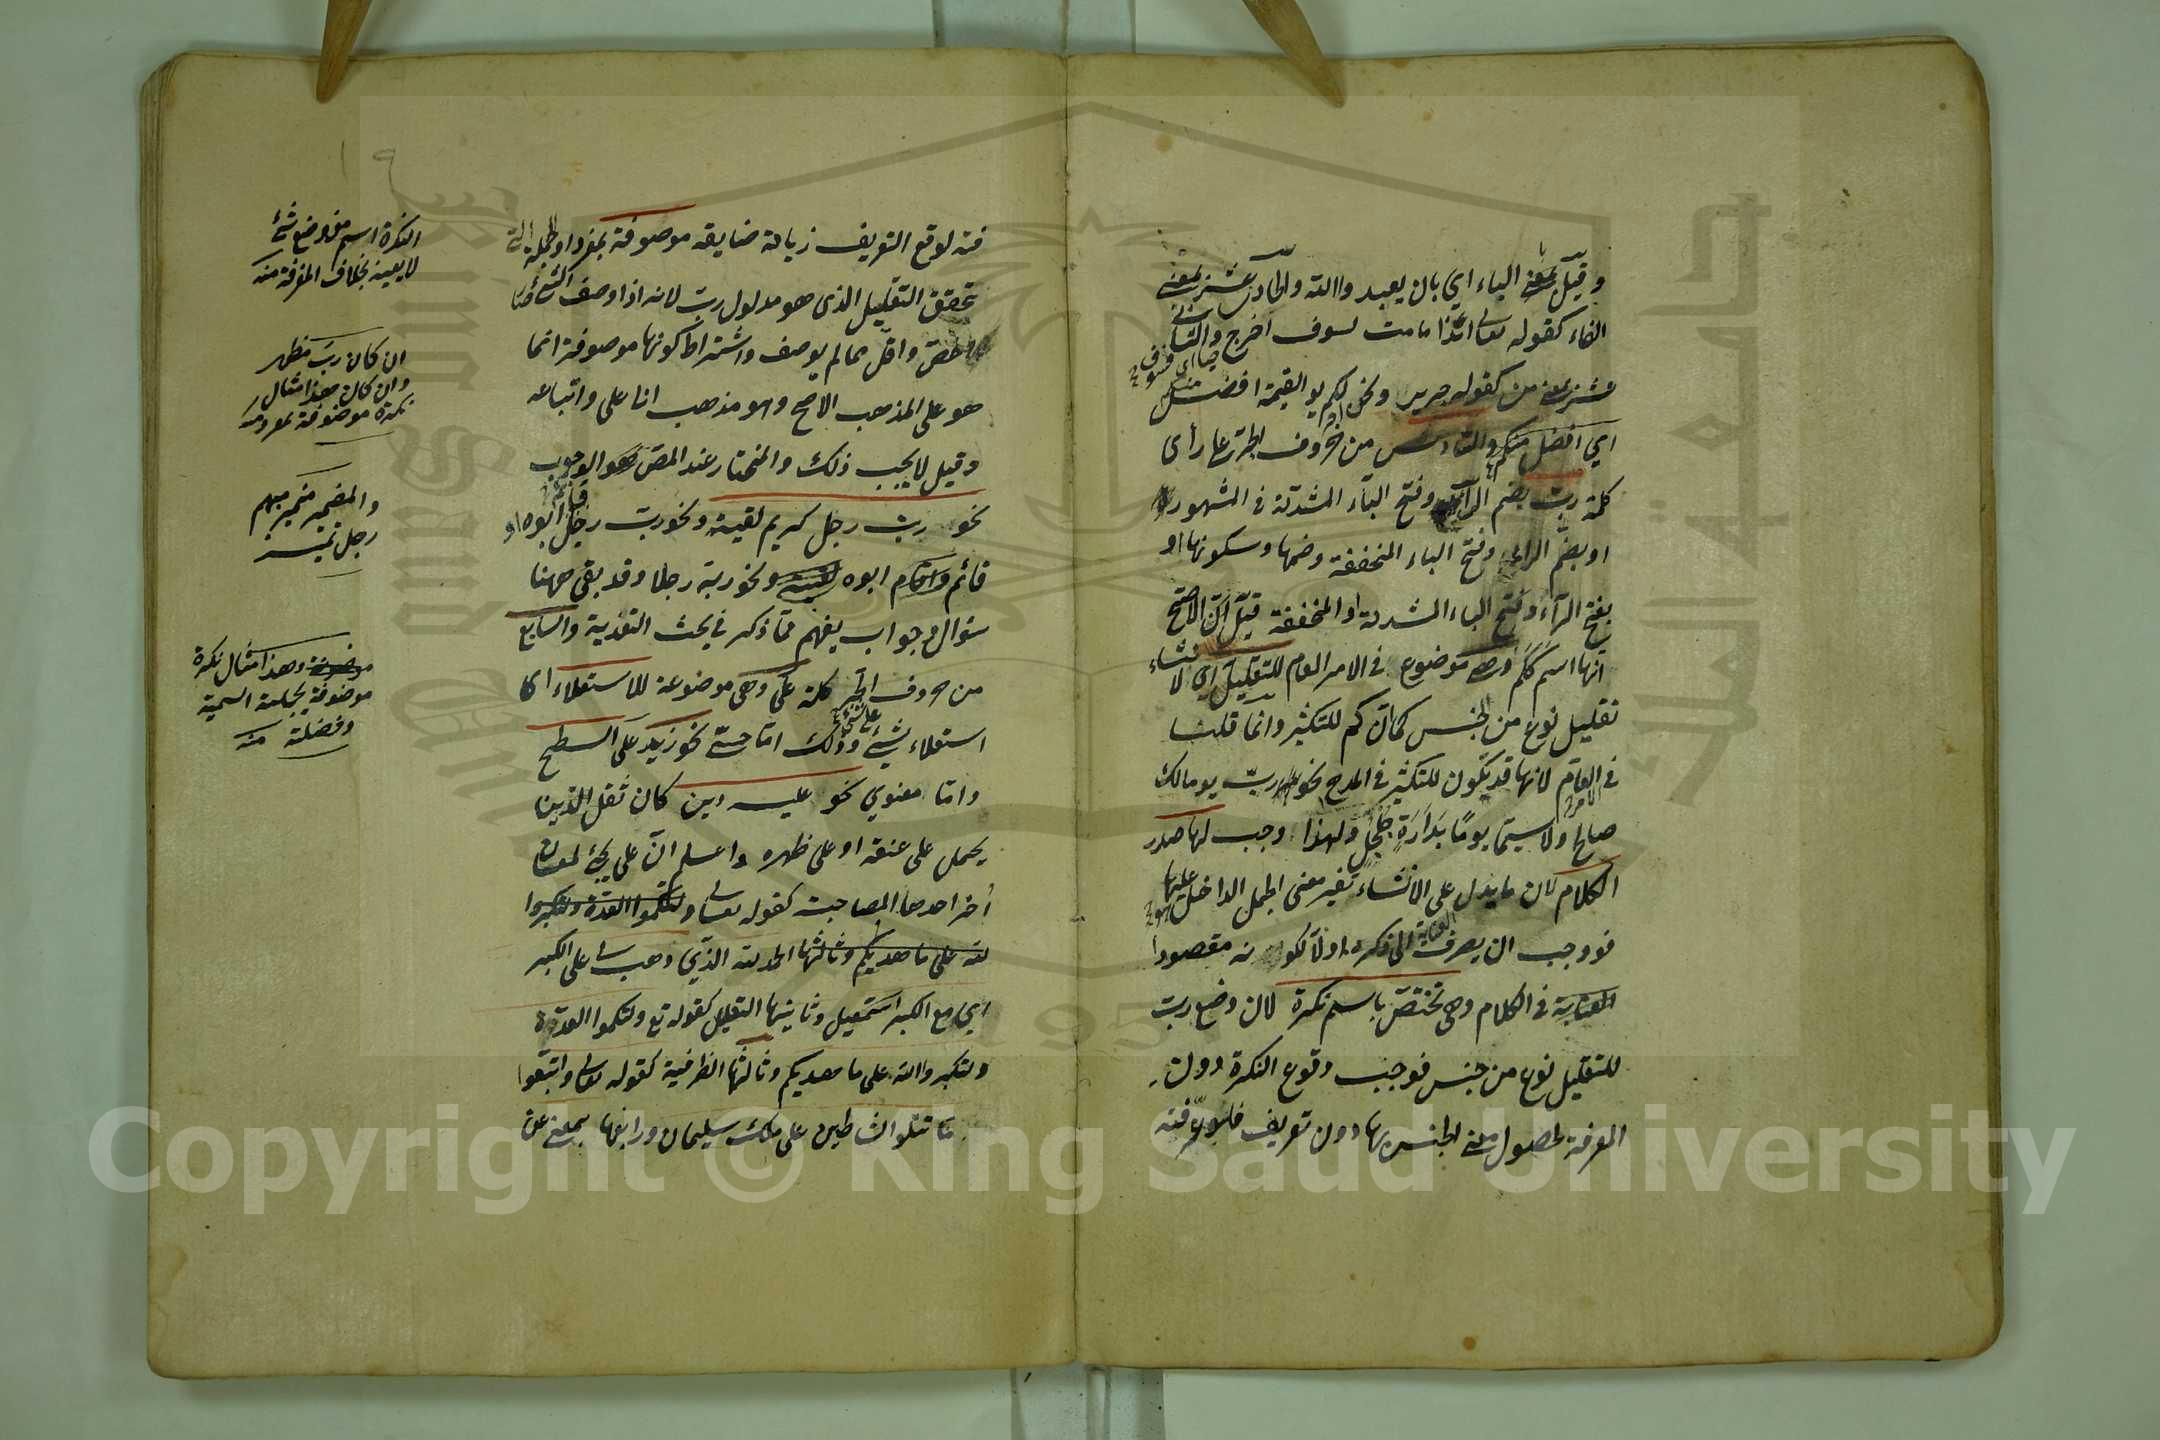 وقيل بمعنى الباء اي بان يعبد واالله والحادي عشر بمعنى
الفاء كقوله تعالى ائذا مامت لسوف اخرج والثاني
عشر بمعنى من كقوله جرير ونحن لكم يوم القيمة افضل
اي افضل منكم والسادس من حروف الجر على رأى
كلمة رب بضم الراء وفتح الباء المشددة في المشهور
او بضم الراء وفتح الباء المخففة وضمها وسكونها او
بفتح الراء وفتح الباء المشددة او المخففة قيل ان الاصح
انها اسم ككم وهي موضوع في الامر العام للتقليل اي لانشاء
تقليل نوع من الجنس كما ان كم للتكثير وانما قلنا
في العام لانها قد يكون للتكثير في المدح نحو رب يوم لك
صالح ولا سيما يوما بدارة جلجل ولهذا وجب لها صدر
الكلام لان ما يدل على الانشاء تغير معنى الجمل الداخل عليها
فووجب ان يصرف العناية الى ذكره اولا لكونه مقصودا
العناية في الكلام وهي تختص باسم نكرة لان وضع رب
للتقليل نوع من جنس فوجب وقوع النكرة دون
المعرفة لحصول معنى الجنس بها دون تعريف فلو عرفته
فته لوقع التعريف زيادة ضايقه موصوفة بمفرد او جملة
تحقق التقليل الذى هو مدلول رب لانه اذا وصف الشئ صار
اخص واقل مما لم يوصف واشتراط كونها موصوفة انما
هو على المذهب الاصح وهو مذهب ابا على واتباعه
وقيل لا يجب ذلك والمختار عند المص هو الوجوب
نحو رب رجل كريم لقيته ونحو رب رجل ابوه
قائم واقام ابوه لقيته ونحو ربه رجلا وقد بقى ههنا
سؤال وجواب يفهم مما ذكر في بحث التعدية والسابع
من حروف الجر كلمة على وهي موضوعة للاستعلاء اى
استعلاء شئ على شئ وذلك اما حسى نحو زيد على السطح
واما معنوي نحو عليه دين كان ثقل الدين
يحمل على عنقه او على ظهره واعلم ان على يجئ لمعان
أخر احدها المصاحبت كقوله تعالى ولتكملوا العدة ولتكبروا
لله على ما هديكم وثالثها الحمد لله الذي وهب لى على الكبر
اي مع الكبر اسمعيل وثانيها التعليل كقوله تع ولتكملوا العدة
ولتكبروا الله على ما هديكم وثالثها الظرفية كقوله تعالى واتبعوا
ما تتلوا الشياطين على ملك سليمان ورابعها بمعنى عن
١٩
النكرة اسم موضوع شئ
لا بعينه بخلاف المعرفة منه
ان كان رب مظهر
وان كان هذا مثال
نكرة موضوفة بمفرد منه
والمضمير ضمير مبهم
رجل تميز
موضوفة وهذا مثال نكرة
موضوفة بجملة اسمية
وفضلته منه
جامعة الملك سعود
King Saud University
1957
Copyright © King Saud University